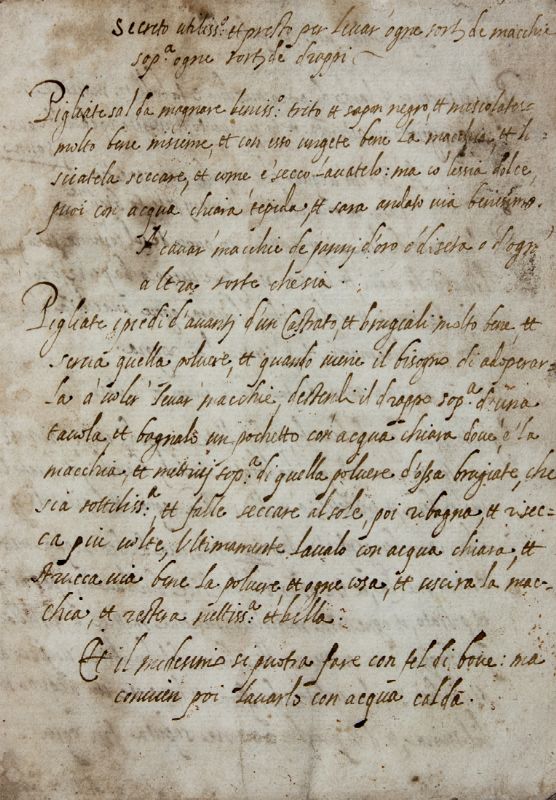 Secreto utiliss.º et presto per levar ogne sorte de macchie
sop.ª ogne sorte de drappi
Pigliate sal da magnare beniss.º trito et sapon negro, et mescolate
molto bene insieme, et con esso ungete bene la macchia, et li
sciatela seccare, et come è secco lavatelo: ma cõ lessia dolce,
puoi con acqua chiara tepida, et sara andato via benissimo.
A cavar macchie de panni d'oro è di seta o d'ogne
altra sorte che sia.
Pigliate i piedi d'avanti d'un Castrato, et brugiali molto bene et
serva quella polvere, et quando viene il bisogno di adoperar
la à voler levar macchie, destendi il drappo sop.ª d'una
tavola, et bagnalo un pochetto con acqua chiara dove è la
macchia, et mettivi sop.ª di quella polvere d'ossa brugiate, che
sia sottiliss.ª et falle seccare al sole poi ribagna, et risec-
ca piu volte, Ultimamente lavalo con acqua chiara, et
strucca via bene la polvere et ogne cosa, et uscira la mac-
chia, et restera nettiss.º et bella.
Et il medesimo si potra fare con fel di bove: ma
convien poi lavarlo con acqua calda.